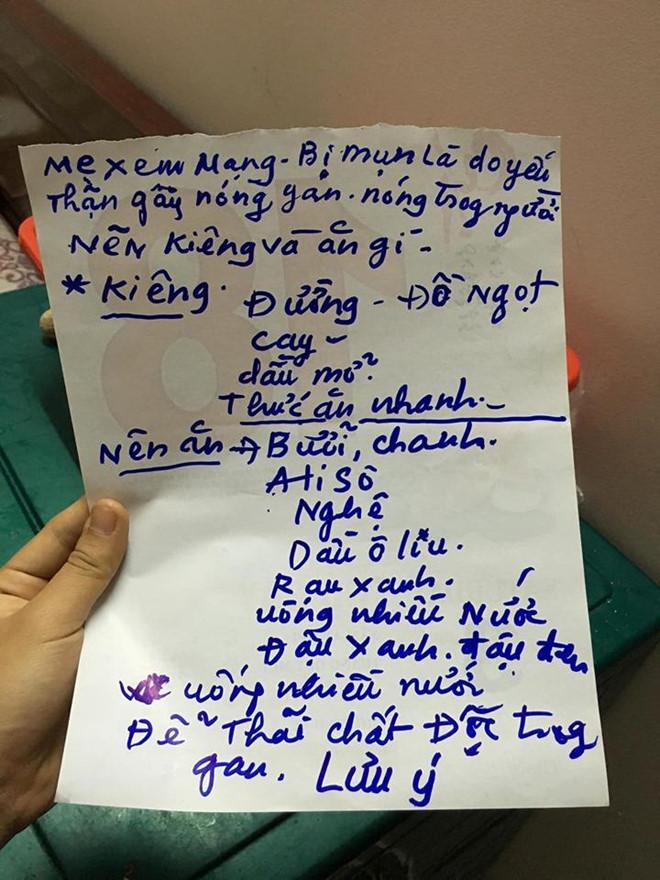 Mẹ xem Mạng - Bị mụn Là do yếu
Thận gây nóng gan. nóng trog người
Nên Kiêng và ăn gì -
* Kiêng. Đường - Đồ Ngọt
cay -
dầu mỡ.
Thức ăn nhanh. -
Nên ăn → Bưởi, chanh.
Atisô
Nghệ
Dầu ô liu.
Rau xanh.
uống nhiều Nước
Đậu xanh. đậu đen
uống nhiều nước
Để Thải chất Độc trog
gan. Lưu ý